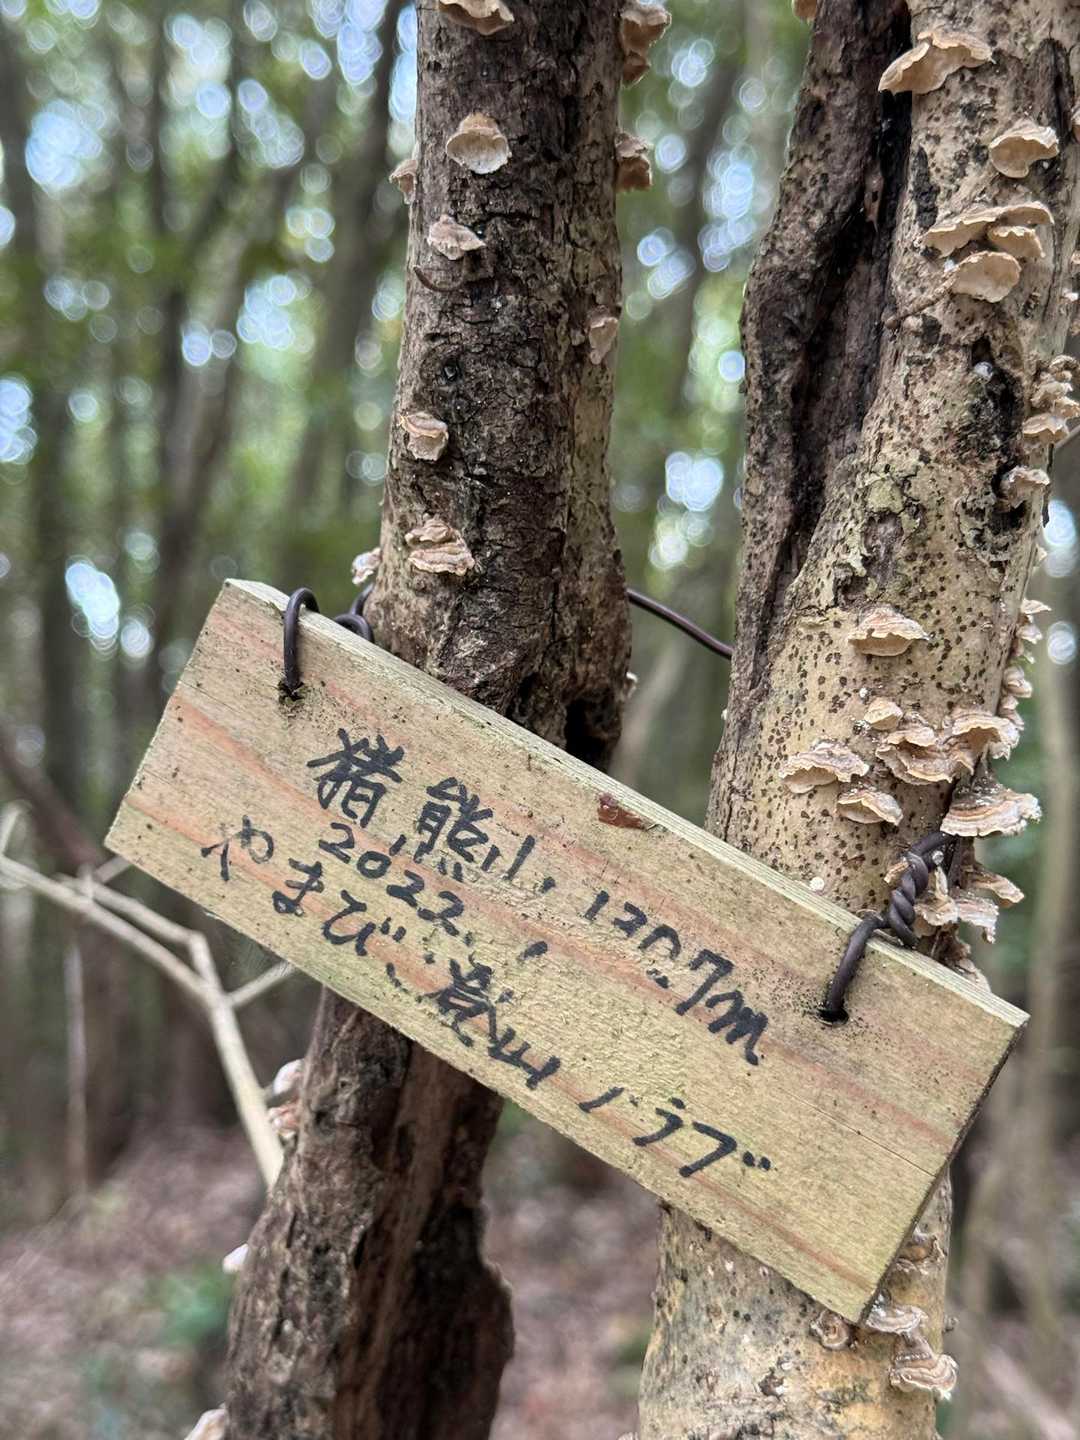 猪熊山 130.7m
2022.1
やまびこ登山クラブ